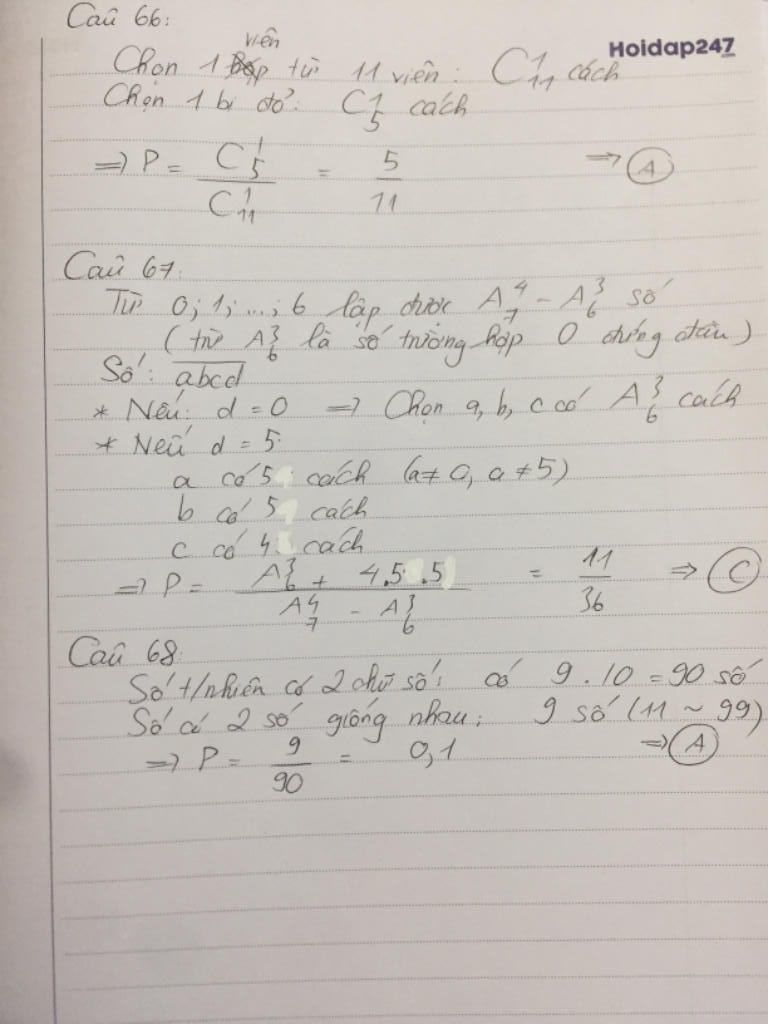 Câu 66:
Hoidap247
viên
Chọn 1 từ 11 viên: C¹₁₁ cách
Chọn 1 bi đỏ: C¹₅ cách
=> P = C¹₅ / C¹₁₁ = 5/11 => A
Câu 67:
Từ 0; 1; ...; 6 lập được A⁴₇ - A³₆ số
(trừ A³₆ là số trường hợp 0 đứng đầu)
Số: abcd
* Nếu: d = 0 => Chọn a, b, c có A³₆ cách
* Nếu d = 5:
a có 5 cách (a ≠ 0, a ≠ 5)
b có 5 cách
c có 4 cách
=> P = (A³₆ + 4.5.5) / (A⁴₇ - A³₆) = 11/36 => C
Câu 68:
Số t/nhiên có 2 chữ số: có 9.10 = 90 số
Số có 2 số giống nhau: 9 số (11 ~ 99)
=> P = 9/90 = 0,1 => A